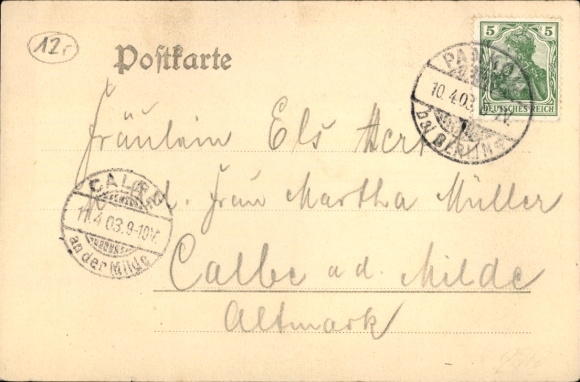 12,-
Postkarte
5
DEUTSCHES REICH
PANKOW
10.4.03.
b. BERLIN
Fräulein Els Hert
CALBE
11.4.03.9-10V.
an der Milde
d. Frau Martha Müller
Calbe a.d. Milde
Altmark